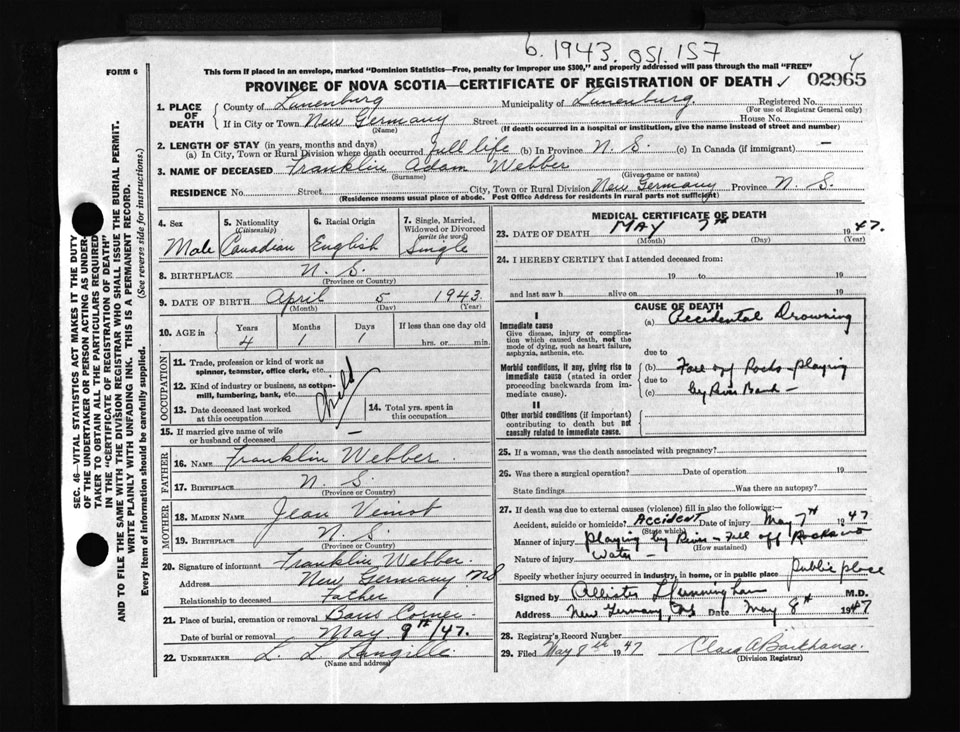 b. 1943. 051. 157
4
FORM 6
This form if placed in an envelope, marked "Dominion Statistics—Free, penalty for improper use $300," and properly addressed will pass through the mail "FREE"
PROVINCE OF NOVA SCOTIA—CERTIFICATE OF REGISTRATION OF DEATH ✓ 02965
1. PLACE OF DEATH
County of Lunenburg Municipality of Lunenburg. Registered No.
(For use of Registrar General only)
If in City or Town New Germany Street House No.
(Name) (If death occurred in a hospital or institution, give the name instead of street and number)
2. LENGTH OF STAY (in years, months and days)
(a) In City, Town or Rural Division where death occurred full life (b) In Province N. S. (c) In Canada (if immigrant) —
3. NAME OF DECEASED Franklin Adam Webber
(Surname) (Given name or names)
RESIDENCE No. Street City, Town or Rural Division New Germany Province N. S.
(Residence means usual place of abode. Post Office Address for residents in rural parts not sufficient)
SEC. 46—VITAL STATISTICS ACT MAKES IT THE DUTY
OF THE UNDERTAKER OR PERSON ACTING AS UNDER-
TAKER TO OBTAIN ALL THE PARTICULARS REQUIRED
IN THE "CERTIFICATE OF REGISTRATION OF DEATH"
AND TO FILE THE SAME WITH THE DIVISION REGISTRAR WHO SHALL ISSUE THE BURIAL PERMIT.
WRITE PLAINLY WITH UNFADING INK. THIS IS A PERMANENT RECORD.
Every item of information should be carefully supplied. (See reverse side for instructions.)
4. Sex Male
5. Nationality (Citizenship) Canadian
6. Racial Origin English
7. Single, Married, Widowed or Divorced (write the word) Single
8. BIRTHPLACE N. S.
(Province or Country)
9. DATE OF BIRTH April 5 1943.
(Month) (Day) (Year)
10. AGE in Years 4 Months 1 Days If less than one day old hrs. or min.
OCCUPATION
11. Trade, profession or kind of work as spinner, teamster, office clerk, etc.
12. Kind of industry or business, as cotton-mill, lumbering, bank, etc.
Child
13. Date deceased last worked at this occupation
14. Total yrs. spent in this occupation
15. If married give name of wife or husband of deceased —
FATHER
16. NAME Franklin Webber.
17. BIRTHPLACE N. S.
(Province or Country)
MOTHER
18. MAIDEN NAME Jean Veinot
19. BIRTHPLACE N. S
(Province or Country)
20. Signature of informant Franklin Webber
Address New Germany NS
Relationship to deceased Father
21. Place of burial, cremation or removal Corner
Date of burial or removal May 9th/47.
22. UNDERTAKER L. L. Langille.
(Name and address)
MEDICAL CERTIFICATE OF DEATH
23. DATE OF DEATH MAY 7th 1947.
(Month) (Day) (Year)
24. I HEREBY CERTIFY that I attended deceased from:
19 to 19
and last saw h alive on 19
CAUSE OF DEATH
I
Immediate cause
Give disease, injury or complication which caused death, not the mode of dying, such as heart failure, asphyxia, asthenia, etc.
(a) Accidental Drowning
due to
Morbid conditions, if any, giving rise to immediate cause (stated in order proceeding backwards from immediate cause).
(b) Fall off Rocks - playing
due to
(c) by River Bank —
II
Other morbid conditions (if important) contributing to death but not causally related to immediate cause.
25. If a woman, was the death associated with pregnancy?
26. Was there a surgical operation? Date of operation 19
State findings Was there an autopsy?
27. If death was due to external causes (violence) fill in also the following:—
Accident, suicide or homicide? Accident Date of injury May 7th 1947
(State which)
Manner of injury playing by River - Fell off Rocks into
(How sustained)
Nature of injury Water —
Specify whether injury occurred in industry, in home, or in public place public place
Signed by M.D.
Address New Germany, Date May 8th 1947
28. Registrar's Record Number
29. Filed May 8th 1947 Clara A Barkhouse.
(Division Registrar)